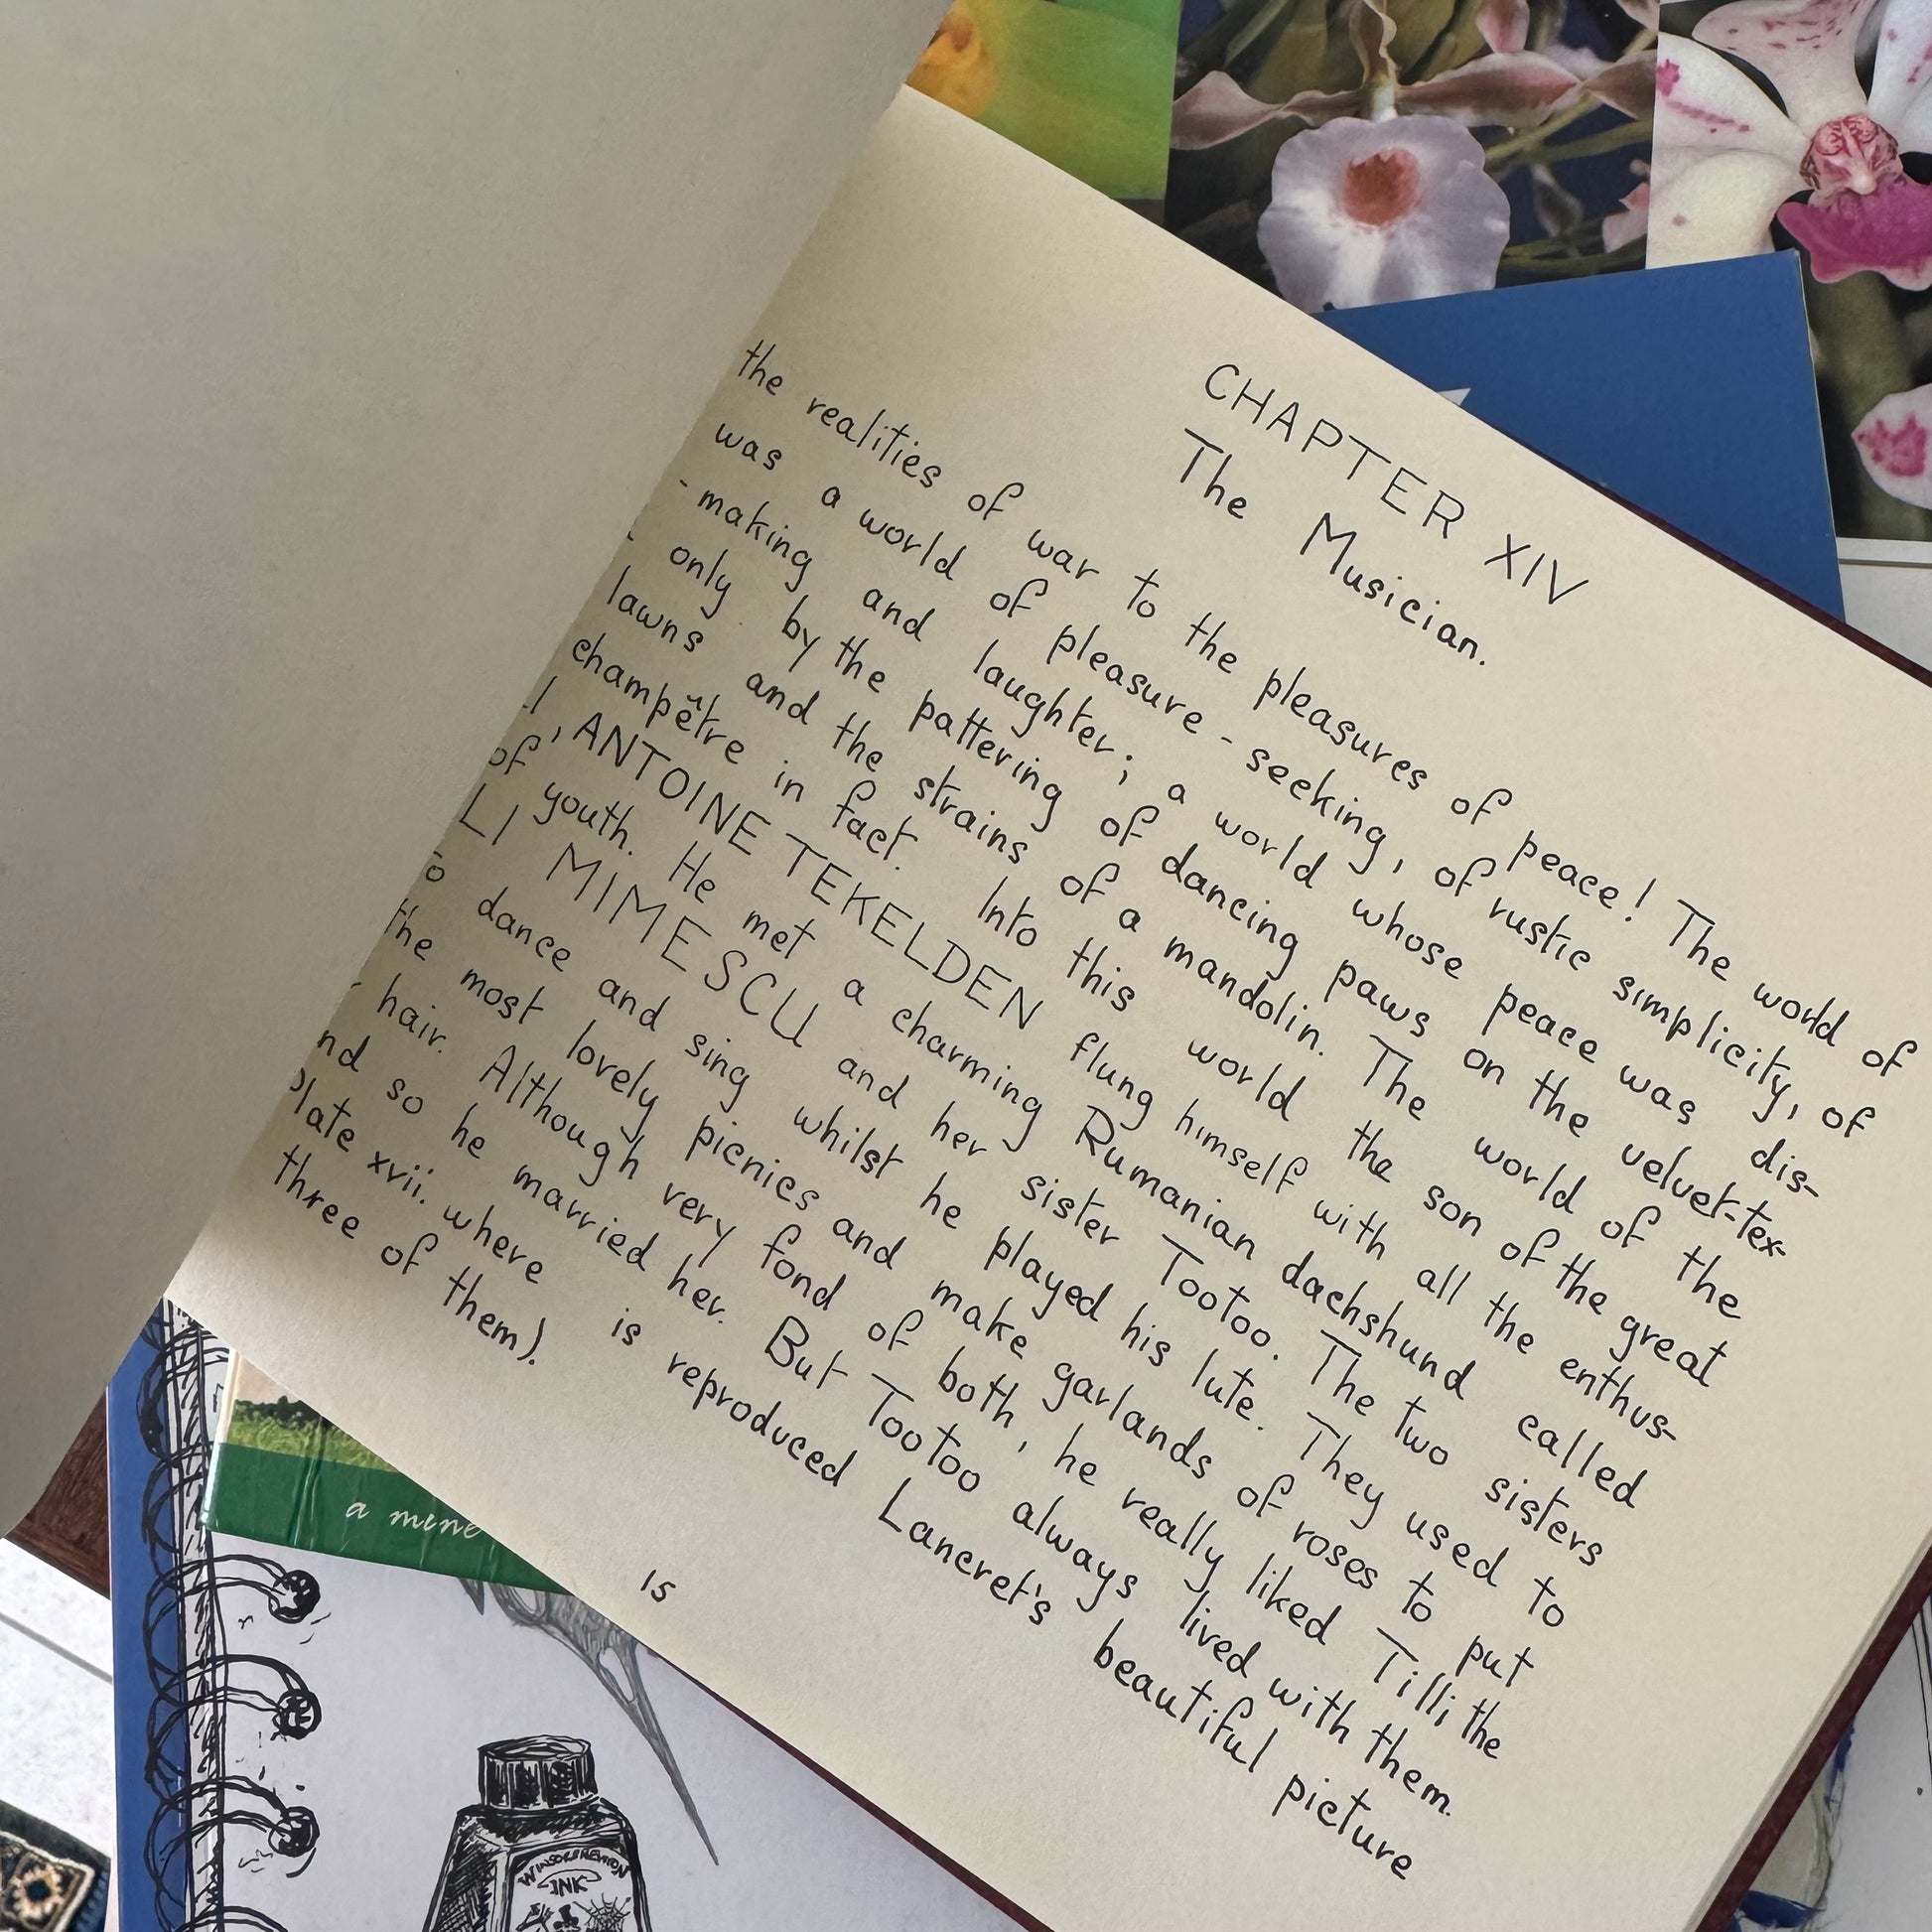 CHAPTER XIV
The Musician.
the realities of war to the pleasures of peace! The world of
was a world of pleasure-seeking, of rustic simplicity, of
-making and laughter; a world whose peace was dis-
only by the pattering of dancing paws on the velvet-tex-
lawns and the strains of a mandolin. The world of the
champêtre in fact. Into this world the son of the great
l, ANTOINE TEKELDEN flung himself with all the enthus-
of youth. He met a charming Rumanian dachshund called
LI MIMESCU and her sister Tootoo. The two sisters
o dance and sing whilst he played his lute. They used to
the most lovely picnics and make garlands of roses to put
hair. Although very fond of both, he really liked Tilli the
nd so he married her. But Tootoo always lived with them.
late xvii. where is reproduced Lancret's beautiful picture
three of them).
15
a mine
WINSOR & NEWTON
INK